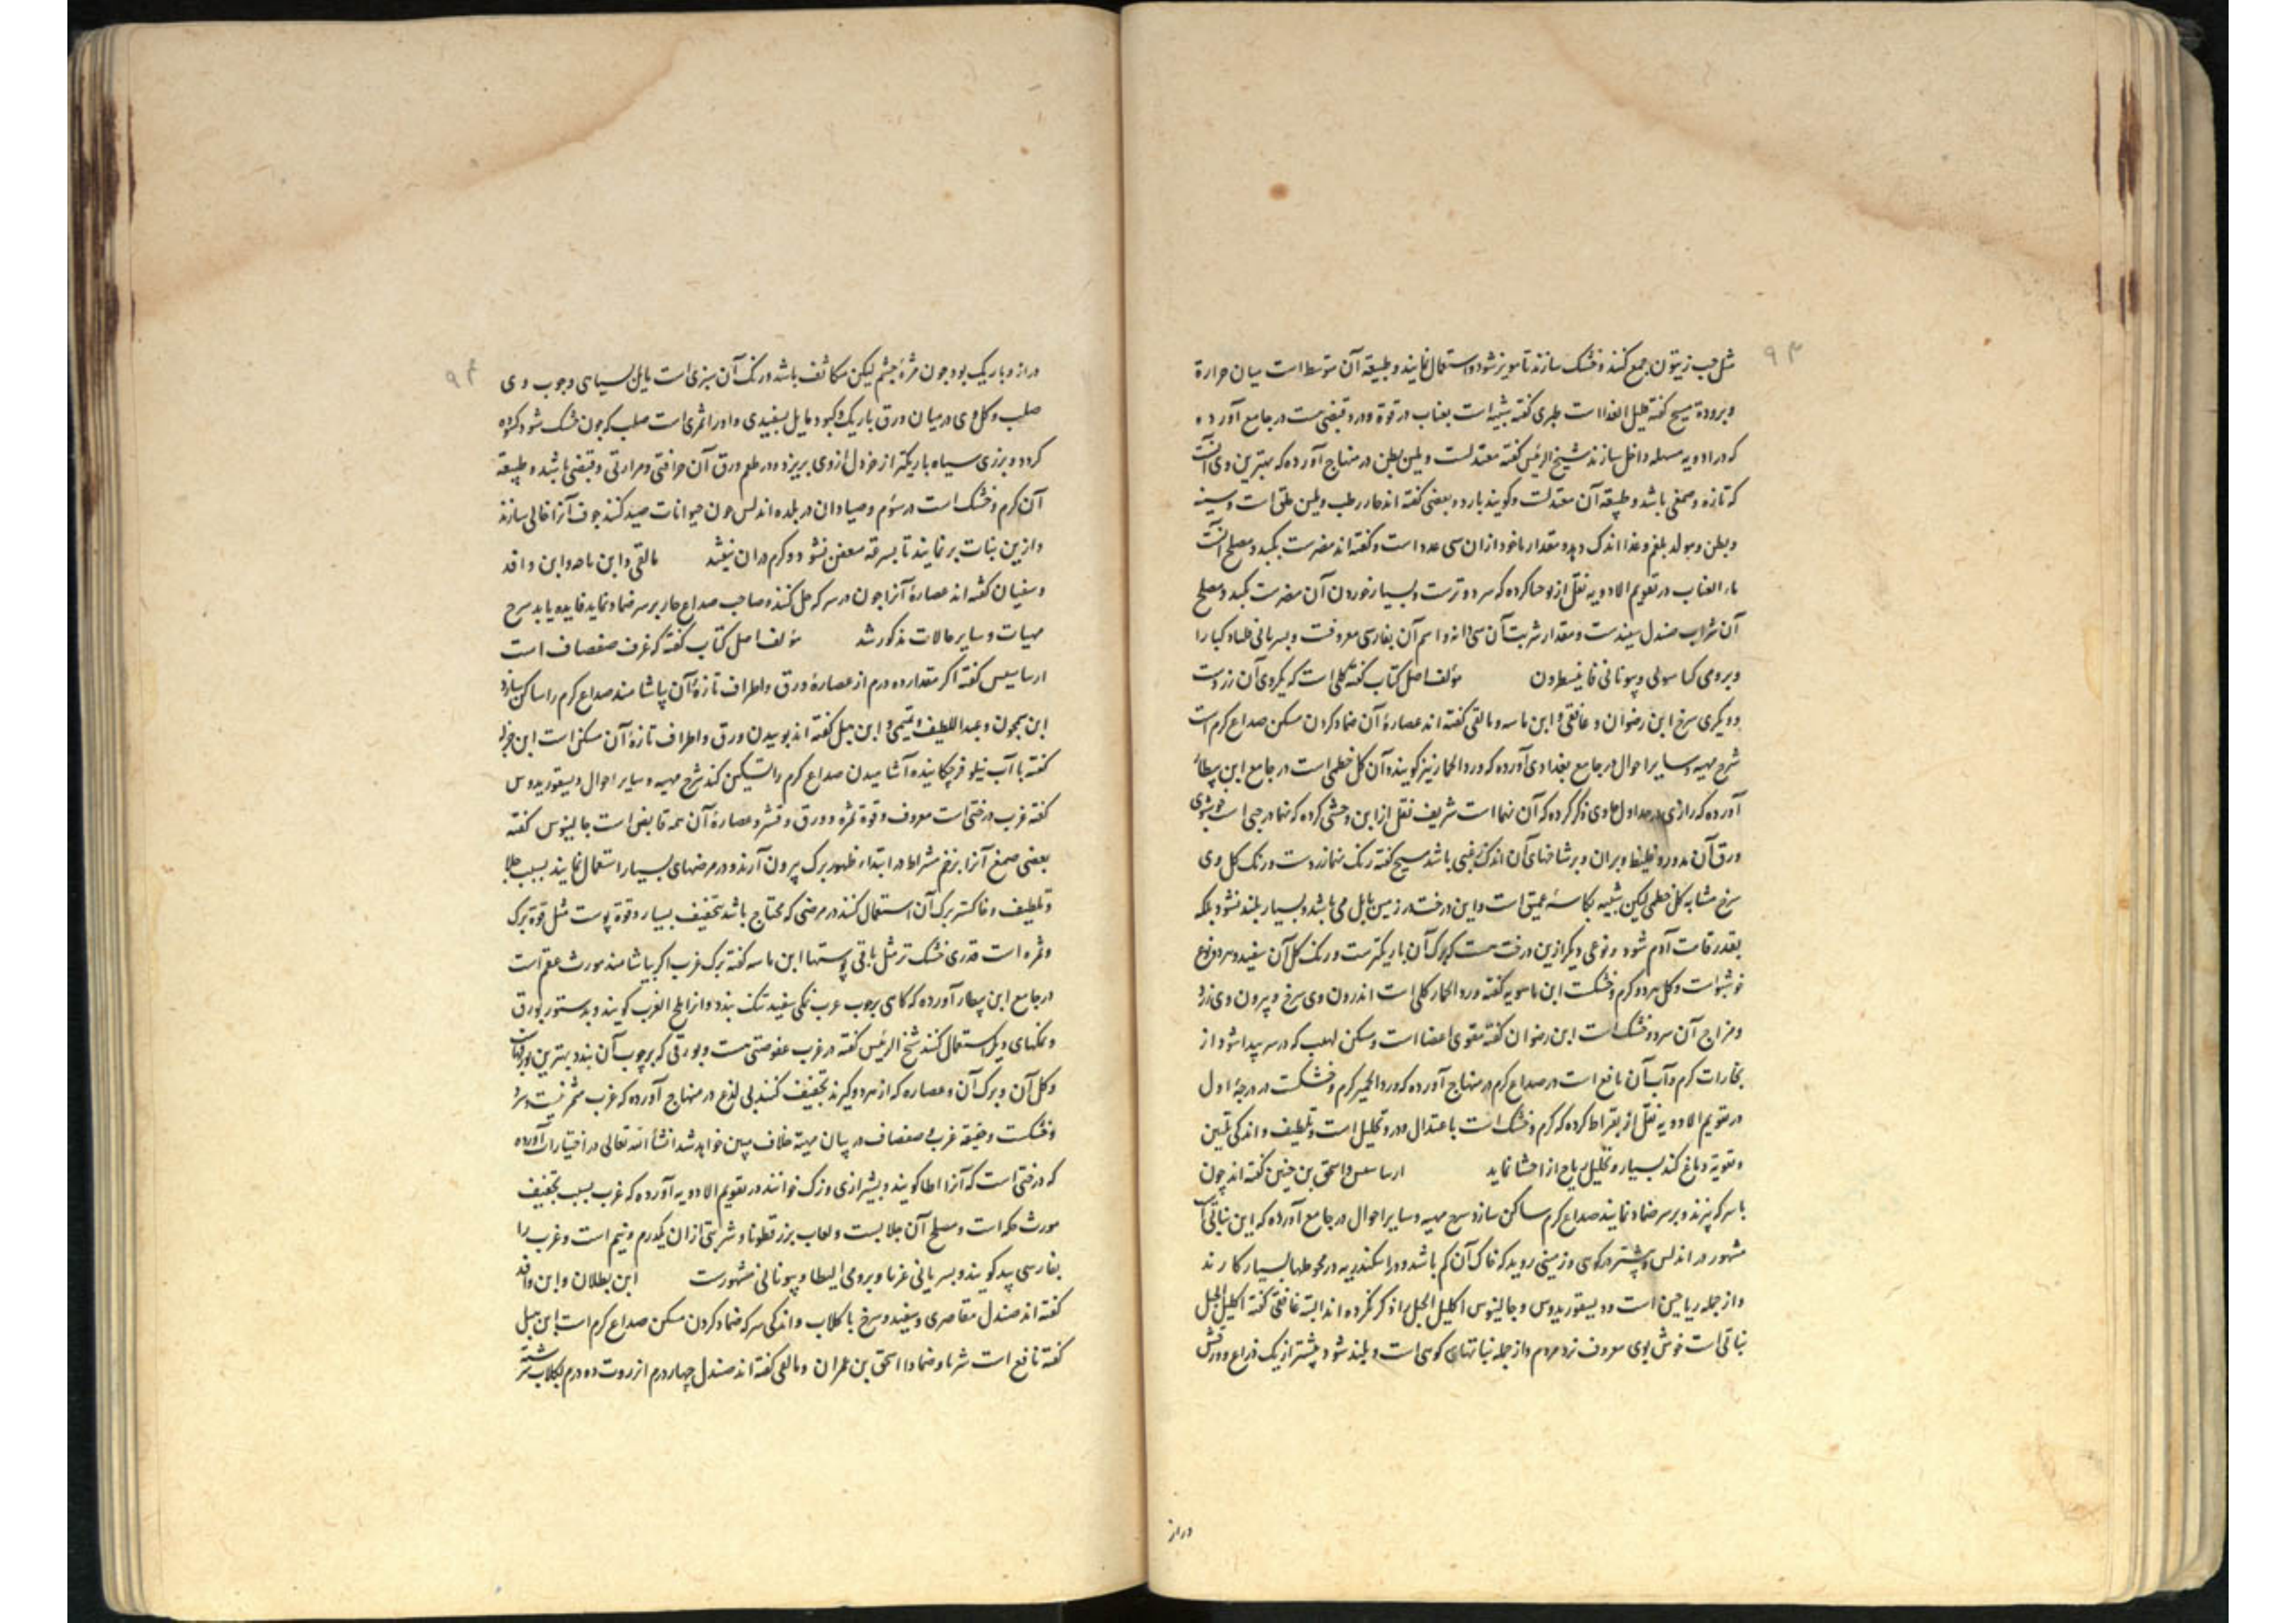 ۹۳
مثل حب زیتون جمع کنند و خشک سازند تا مویز شود و استعمال نمایند و طبیعة آن متوسط است میان حرارة
و برودة مسیح کفته قلیل الغذا است طبری کفته شبیه است بعناب در قوة و درو قبضی هست در جامع آورده
که در ادویه مسهله داخل سازند شیخ الرئیس کفته معتدلست و ملین بطن در منهاج آورده که بهترین وی آنست
که تازه و صمغی باشد و طبیعة آن معتدلست و کویند بارد و بعضی کفته اند حار رطب و ملین حلق است و سینه
و بطن و مولد بلغم و غذا اندک دهد و مقدار ماخوذ ازان سی عدد است و کفته اند مضرست بکبد و مصلح آنست
ماء العناب در تقویم الادویه نقل از یوحنا کرده که سرد و ترست و بسیار خوردن آن مضرست بکبد و مصلح
آن شراب صندل سفیدست و مقدار شربت آن سی دانه و اسم آن بفارسی معروفست و بسریانی
و برومی و یونانی مؤلف اصل کتاب کفته کلی است که یکروی آن زردست
و دیکری سرخ ابن رضوان و غافقی و ابن ماسه و مالقی کفته اند عصارهٔ آن ضماد کردن مسکن صداع کرم است
شرح مهیه و سایر احوال در جامع بغدادی آورده که ورد الحمار نیز کویند و آن کل خطمی است در جامع ابن بیطار
آورده که رازی در جداول حاوی ذکر کرده که آن است شریف نقل از ابن وحشی کرده که درختی است خوشبوی
ورق آن مدور و غلیظ و بران و بر شاخهای آن اندک زغبی باشد مسیح کفته رنک زردست و رنک کل وی
سرخ مشابه کل خطمی لیکن شبیه بکاسهٔ عمیق است و این درخت در زمین بابل می باشد و بسیار بلند نشود بلکه
بقدر قامت آدم شود و نوعی دیکر ازین درخت هست که برک آن باریکترست و رنک کل آن سفید و هر دو نوع
خوشبوست و کل هر دو کرم و خشکست ابن ماسویه کفته ورد الحمار کلی است اندرون وی سرخ و بیرون وی زرد
و مزاج آن سرد و خشک است ابن رضوان کفته مقوی اعضا است و مسکن لهب که در سر پیدا شود از
بخارات کرم و آب آن نافع است در صداع کرم در منهاج آورده که ورد الحمیر کرم و خشکست در درجهٔ اول
در تقویم الادویه نقل از بقراط کرده که کرم و خشک است باعتدال و درو تحلیل است و تلطیف و اندکی تلیین
و تقویة دماغ کند بسیار و تحلیل ریاح از احشا نماید ارساسیس و اسحق بن حنین کفته اند چون
با سرکه پزند و بر سر ضماد نمایند صداع کرم ساکن سازد شرح مهیه و سایر احوال در جامع آورده که این نباتی است
مشهور در اندلس و بیشتر در کوهی و زمینی روید که خاک آن کم باشد و در اسکندریه در محوطها بسیار کارند
و از جمله ریاحین است و دیسقوریدوس و جالینوس اکلیل الجبل را ذکر نکرده اند البته غافقی کفته اکلیل الجبل
نباتی است خوش بوی معروف نزد مردم و از جمله نباتهای کوهی است و بلند شود بیشتر از یک ذراع و ورقش
دراز
۹۴
دراز و باریک بود چون مژهٔ چشم لیکن متکاثف باشد و رنک آن سبزی است مایل بسیاهی و چوب وی
صلب و کل وی در میان ورق باریک و کبود مایل بسفیدی و او را ثمری است صلب که چون خشک شود کشوده
کردد و بزری سیاه باریکتر از خردل ازوی بریزد و در طعم ورق آن حرافتی و مرارتی و قبضی باشد و طبیعة
آن کرم و خشک است در سوم و صیادان در بلده اندلس چون حیوانات صید کنند جوف آنرا خالی سازند
و ازین نبات بر نمایند تا بسرعه متعفن نشود و کرم دران نیفتد مالقی و ابن ماسه و ابن وافد
و سفیان کفته اند عصارهٔ آنرا چون در سرکه حل کنند و صاحب صداع حار بر سر ضماد نماید فایده یابد شرح
مهیات و سایر حالات مذکور شد مؤلف اصل کتاب کفته که غرف صفصاف است
ارساسیس کفته اکر مقدار ده درم از عصارهٔ ورق و اطراف تازهٔ آن بیاشامند صداع کرم را ساکن سازد
ابن سمجون و عبد اللطیف و تمیمی و ابن هبل کفته اند بوییدن ورق و اطراف تازهٔ آن مسکن است ابن جزله
کفته با آب نیلوفر چکانیده آشامیدن صداع کرم را تسکین کند شرح مهیه و سایر احوال دیسقوریدوس
کفته غرب درختی است معروف و قوة ثمره و ورق و قشر و عصارهٔ آن همه قابض است جالینوس کفته
بعضی صمغ آنرا بزخم مشراط در ابتداء ظهور برک بیرون آرند و در مرضهای بسیار استعمال نمایند بسبب جلا
و تلطیف و خاکستر برک آن استعمال کنند در مرضی که محتاج باشد بتجفیف بسیار و قوة پوست مثل قوة برک
و ثمره است قدری خشک تر مثل باقی پوستها ابن ماسه کفته برک غرب اکر بیاشامند مورث عقم است
در جامع ابن بیطار آورده که کاهی بر چوب غرب نمکی سفید تنک بندد و انرا ملح الغرب کویند و بدستور بورق
و نمکهای دیکر استعمال کنند شیخ الرئیس کفته در غرب عفوصتی هست و بورقی که بر چوب آن بندد بهترین بورقهاست
و کل آن و برک آن و عصاره که از هر دو کیرند تجفیف کنند بی لذع در منهاج آورده که غرب مثمر نیست و سرد
و خشکست و حقیقة غرب و صفصاف در بیان مهیه خلاف مبین خواهد شد انشاء الله تعالی در اختیارات آورده
که درختی است که آنرا اطا کویند و بشیرازی وزک خوانند در تقویم الادویه آورده که غرب بسبب تجفیف
مورث حکه است و مصلح آن جلابست و لعاب بزر قطونا و شربتی ازان یکدرم و نیم است و غرب را
بفارسی بید کویند و بسریانی عربا و برومی ایطا و یونانی مشهورست ابن بطلان و ابن وافد
کفته اند صندل مقاصری و سفید و سرخ با کلاب و اندکی سرکه ضماد کردن مسکن صداع کرم است ابن هبل
کفته نافع است شربا و ضمادا اسحق بن عمران و مالقی کفته اند صندل چهار درم انزروت ده درم بکلاب سرشته